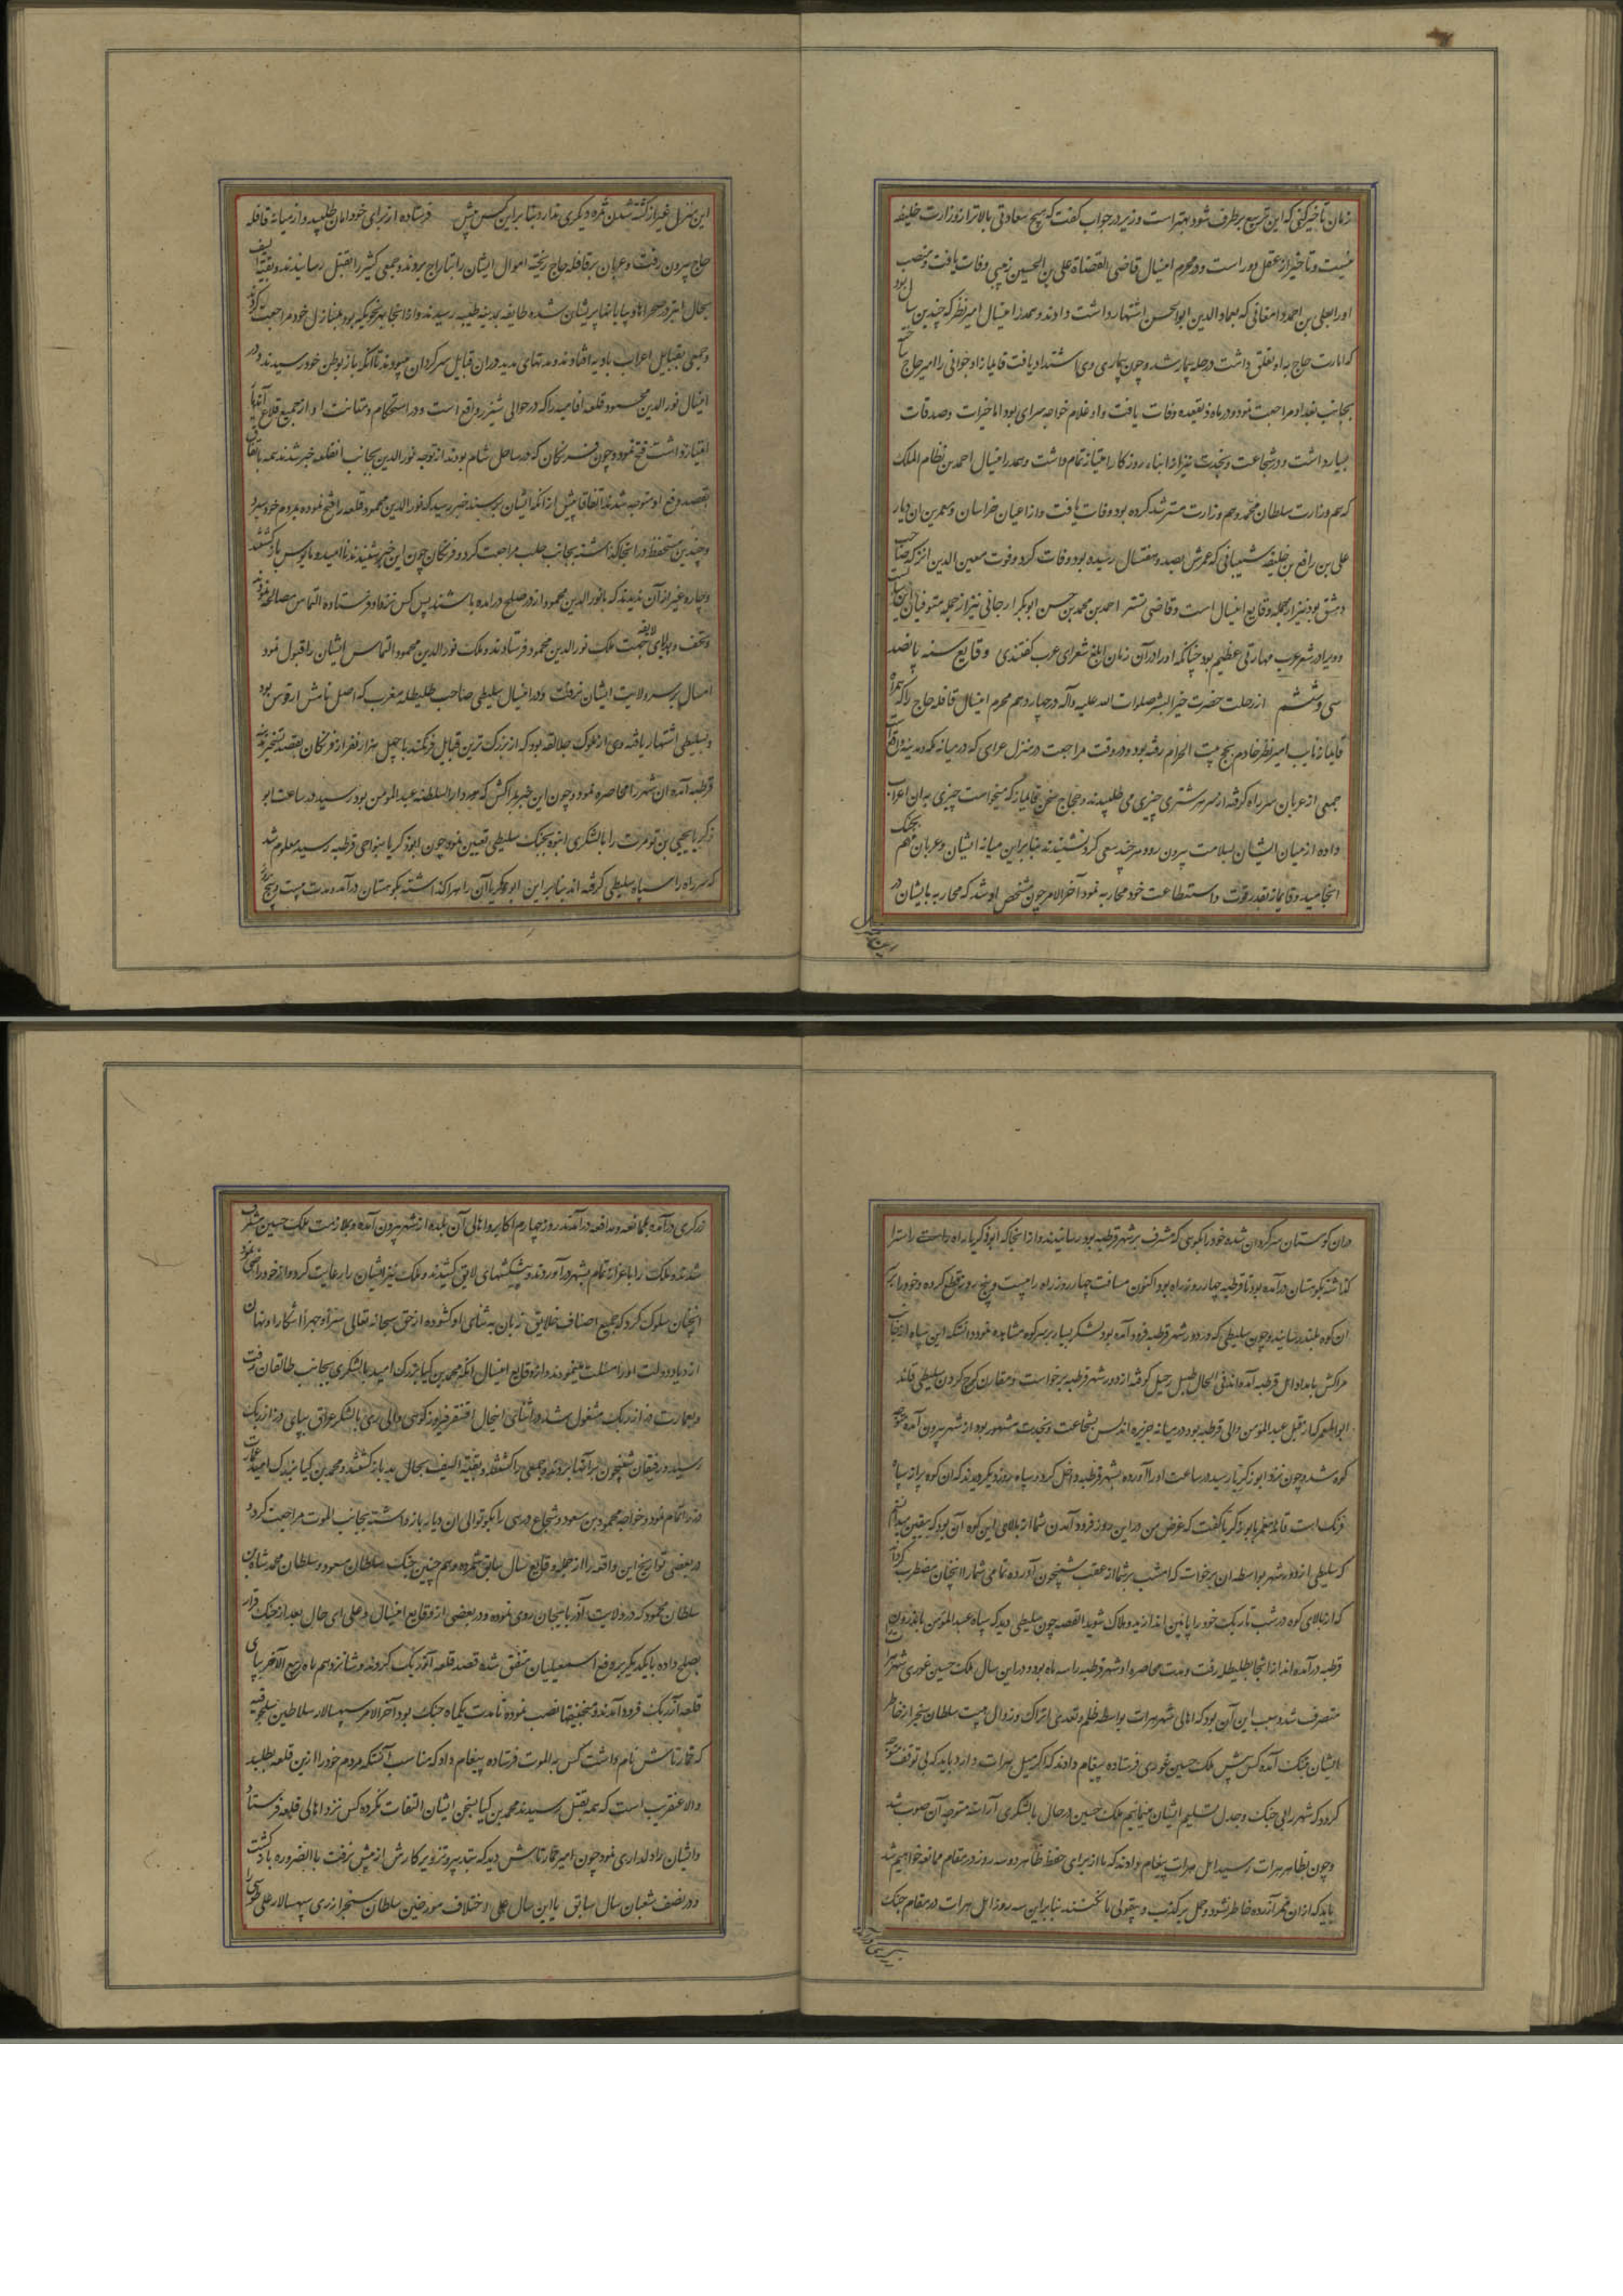 زمان تاخیر کنی که این تربیع برطرف شود بهتر است وزیر در جواب گفت که هیچ سعادتی بالاتر از وزارت خلیفه
نیست و تاخیر از عقل دور است و در محرم امنسال قاضی القضاة علی بن الحسین زینبی وفات یافت و منصب
او را بعلی بن احمد دامغانی که بعماد الدین ابو الحسن اشتهار داشت دادند و هم در امنسال امیر نظر که چندین سال بود
که امارت حاج به او تعلق داشت در حله بیمار شد و چون بیماری وی اشتداد یافت قایماز ارجوانی را امیر حاج ساخته
بجانب بغداد مراجعت نمود و در ماه ذیقعده وفات یافت و او غلام خواجه سرای بود اما خیرات و صدقات
بسیار داشت و در شجاعت و نجدت نیز از ابناء روزگار امتیاز تمام داشت و هم در امنسال احمد بن نظام الملک
که هم وزارت سلطان محمد و هم وزارت مسترشد کرده بود وفات یافت و از اعیان خراسان و معمرین ان دیار
علی بن رافع بن خلیفه شیبانی که عمرش بصد و هفتسال رسیده بود وفات کرد و فوت معین الدین انز که صاحب
دمشق بود نیز از جمله وقایع امنسال است و قاضی تستر احمد بن محمد بن حسن ابو بکر ارجانی نیز از جمله متوفیان این سالست
و ویرا در شعر عرب مهارتی عظیم بود چنانکه او را در آن زمان ابلغ شعرای عرب گفتندی وقایع سنه پانصد
سی و ششم از رحلت حضرت خیر البشر صلوات الله علیه و آله در چهاردهم محرم امنسال قافله حاج را که همراه
قایماز نایب امیر نظر خادم بحج بیت الحرام رفته بود در وقت مراجعت در منزل عرای که در میانه مکه و مدینه واقعست
جمعی از عربان سر راه گرفته از سر هر شتری چیزی می طلبیدند و حجاج سخن قایماز که میخواست چیزی به ان اعراب
داده از میان ایشان بسلامت بیرون رود هر چند سعی کرد نشنیدند بنابراین میانه ایشان و عربان مهم بجنگ
انجامید و قایماز بقدر قوت و استطاعت خود محاربه نمود آخر الامر چون مشخص او شد که محاربه با ایشان در
این منزل
این منزل غیر از کشته شدن ثمره دیگری ندارد بنا براین کس پیش فرستاده از برای خود امان طلبید و از میانه قافله
حاج بیرون رفت و عربان بر قافله حاج ریخته اموال ایشان را بتاراج بردند و جمعی کثیر را بقتل رسانیدند و بقیة السیف
بحال ابتر در صحراها و بیابانها پریشان شده طایفه بمدینه طیبه رسیدند و از انجا بهر نحو که بود بمنازل خود مراجعت کردند
و جمعی بقبایل اعراب بادیه افتادند و مدتهای مدید در ان قبایل سرگردان میبودند تا آنکه باز بوطن خود رسیدند و در
امنسال نور الدین محمود قلعه افامیه را که در حوالی شیزر واقع است و در استحکام و متانت او از جمیع قلاع آنجا
امتیاز داشت فتح نمود و چون فرنکان که در ساحل شام بودند از توجه نور الدین بجانب انقلعه خبر شدند همه باتفاق
بقصد دفع او متوجه شدند اتفاقا پیش از انکه ایشان برسند خبر رسید که نور الدین محمود قلعه را فتح نموده بمردم خود سپرد
و چندین مستحفظ در انجا گذاشته بجانب حلب مراجعت کرد و فرنکان چون این خبر شنیدند ناامید و مایوس باز گشتند
و چاره غیر از آن ندیدند که با نور الدین محمود از در صلح در امده باشند پس کس نزد او فرستاده التماس مصالحه نمودند
و تحف و هدایای لایقه جهت ملک نور الدین محمود فرستادند و ملک نور الدین محمود التماس ایشان را قبول نمود
امسال بر سر ولایت ایشان نرفت و در امنسال سلیطی صاحب طلیطله مغرب که اصل نامش ارقوس بود
و بسلیطی اشتهار یافته وی از ملوک جلالقه بود که از بزرک ترین قبایل فرنکند با چهل هزار نفر از فرنکان بقصد تسخیر مدینه
قرطبه آمده ان شهر را محاصره نمود و چون این خبر بمراکش که دار السلطنه عبد المومن بود رسید در ساعت ابو
زکریا یحیی بن تومرت را با لشکری انبوه بجنک سلیطی تعیین نمود چون ابو زکریا بنواحی قرطبه رسید معلوم شد
که سر راه را سپاه سلیطی گرفته اند بنابراین ابو زکریا آن راه را گذاشته بکوهستان در آمد و مدت بیست و پنج روز
دران کوهستان سرگردان شده خود را بکوهی که مشرف بر شهر قرطبه بود رسانیدند و از انجا که ابو زکریا راه راست را
گذاشته بکوهستان درآمده بود تا قرطبه چهار روز راه بود اکنون مسافت چهار روز راه را بیست و پنج روز قطع کرده و خود را بر سر
ان کوه بلند رسانید و چون سلیطی که در دور شهر قرطبه فرود آمده بود لشکر بسیار بر سر کوه مشاهده نمود دانست که این سپاه از جانب
مراکش بامداد اهل قرطبه آمده اند فی الحال طبل رحیل کوفته از دور شهر قرطبه برخواست و مقارن کوچ کردن سلیطی قائد
ابو الغمر که از قبل عبد المومن والی قرطبه بود و در میانه جزیره اندلس بشجاعت و نجدت مشهور بود از شهر بیرون آمده متوجه
کوه شد و چون نزد ابو زکریا رسید در ساعت او را آورده بشهر قرطبه داخل کرد و سپاه روز دیگر دیدند که ان کوه پر از سپاه
فرنک است قائد ابو الغمر با ابو زکریا گفت که غرض من در این روز فرود آمدن شما از بالای این کوه آن بود که یقین میدانستم
که سلیطی از دور شهر بواسطه ان برخواست که امشب بر شما از عقب شبیخون آورده تمامی شما را انچنان مضطرب گرداند
که از بالای کوه در شب تاریک خود را پایین اندازید و هلاک شوید القصه چون سلیطی دید که سپاه عبد المومن باندرون
قرطبه درآمده اند از انجا بطلیطله رفت و مدت محاصره او شهر قرطبه را سه ماه بود و دراین سال ملک حسین غوری شهر هرات را
متصرف شد و سبب این آن بود که اهالی شهر هرات بواسطه ظلم و تعدی اتراک و زوال هیبت سلطان سنجر از خاطر
ایشان بتنک آمده کس پیش ملک حسین غوری فرستاده پیغام دادند که اگر میل هرات دارد باید که بی توقف متوجه
گردد که شهر را بی جنک و جدل تسلیم ایشان مینمائیم ملک حسین در حال با لشکری آراسته متوجه آن صوب شد
و چون بظاهر هرات رسید اهل هرات پیغام دادند که ما از برای حفظ ظاهر دو سه روز در مقام ممانعه خواهیم شد
باید که از ان ممر آزرده خاطر نشود و حمل بر کذب و بیقولی ما نکنند بنابراین سه روز اهل هرات در مقام جنک
زرگری درآمده بممانعه و مدافعه درآمدند روز چهارم اکابر و اهالی آن بلده از شهر بیرون آمده و بملازمت ملک حسین مشرف
شدند و ملک را باعزاز تمام بشهر درآوردند و پیشکشهای لایق کشیدند و ملک نیز ایشان را رعایت کرد و از خود راضی نمود
انچنان سلوک کرد که جمیع اصناف خلایق زبان به ثنای او گشوده از حق سبحانه تعالی سرا و جهرا اشکارا و نهان
ازدیاد دولت او را مسئلت مینمودند و از وقایع امنسال انکه محمد بن کیا بزرک امید با لشکری بجانب طالقان رفت
و بعمارت دز ازدبک مشغول شد در اثنای اینحال اقسنقر فیروز کوهی والی ری با لشکر عراق بپای دز ازدبک
رسید و رفیقان شبیخون بر آنها بردند و جمعی را کشتند و بقیة السیف بحال بد باز گشتند و محمد بن کیا بزرک امید عمارت
دز را تمام نمود و خواجه محمود بن مسعود و شجاع دروسی را بکوتوالی ان دیار باز داشته بجانب الموت مراجعت کرد و
در بعضی تواریخ این واقعه را از جمله وقایع سال سابق شمرده و هم چنین جنک سلطان مسعود و سلطان محمد شاه بن
سلطان محمود که در ولایت آذربایجان روی نموده و در بعضی از وقایع امنسال و علی ای حال بعد از جنک قرار
بصلح داده با یکدیگر بر دفع اسمعیلیان متفق شده قصد قلعه ازدبک کردند و شانزدهم ماه ربیع الآخر بپای
قلعه ازدبک فرود آمدند و منجنیقها نصب نموده تا مدت یکماه جنک بود آخر الامر سپهسالار سلاطین سلجوقیه
که خمارتاش نام داشت کس به الموت فرستاده پیغام داد که مناسب آنستکه مردم خود را ازین قلعه بطلبید
والا عنقریب است که همه بقتل رسیدند محمد بن کیا بسخن ایشان التفات نکرده کس نزد اهالی قلعه فرستاد
و ایشان را دلداری نمود چون امیر خمارتاش دید که بتدبیر و تزویر کارش از پیش نرفت بالضروره باز گشت
و در نصف شعبان سال سابق یا این سال علی اختلاف مورخین سلطان سنجر از ری سپهسالار علی طوسی را